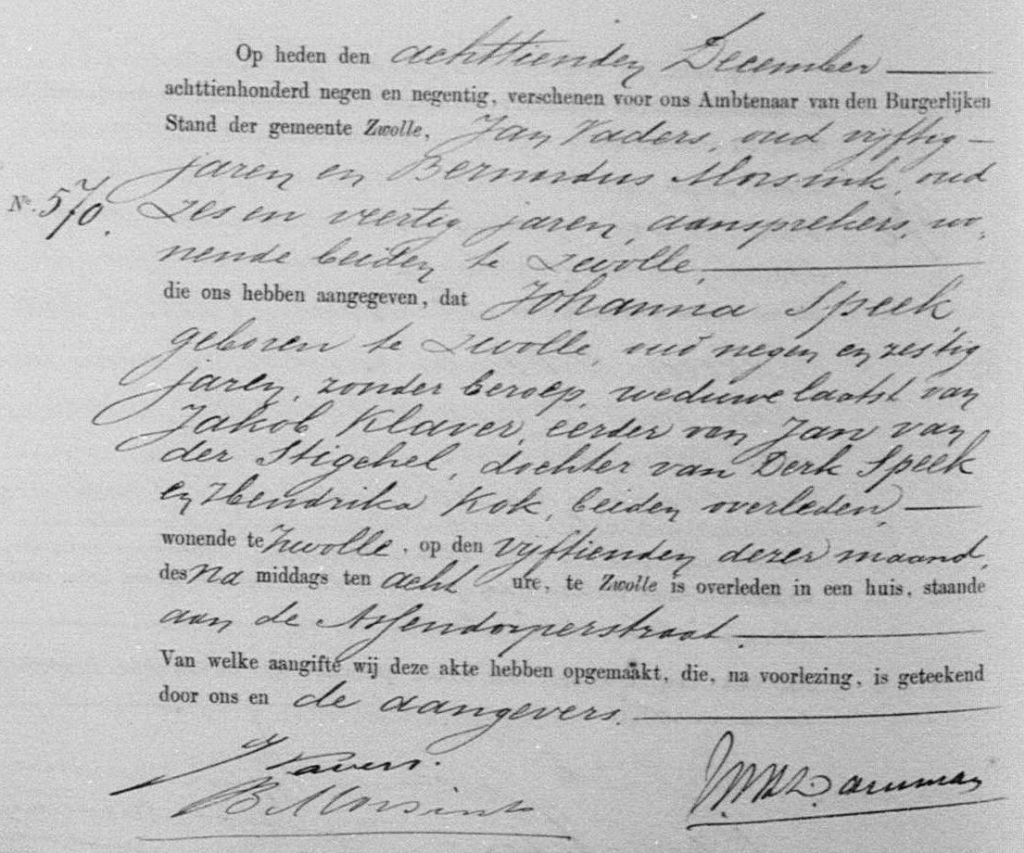 Op heden den achttienden December
achttienhonderd negen en negentig, verschenen voor ons Ambtenaar van den Burgerlijken
Stand der gemeente Zwolle, Jan Vaders, oud vijftig
jaren en Bernardus Morsink, oud
No. 570. zes en veertig jaren, aansprekers, wo,
nende beiden te Zwolle
die ons hebben aangegeven, dat Johanna Speek
geboren te Zwolle, oud negen en zestig
jaren, zonder beroep, weduwe laatst van
Jakob Klaver, eerder van Jan van
der Stigchel, dochter van Derk Speek
en Hendrika Kok, beiden overleden,
wonende te Zwolle, op den vijftienden dezer maand,
des na middags ten acht ure, te Zwolle is overleden in een huis, staande
aan de Assendorperstraat
Van welke aangifte wij deze akte hebben opgemaakt, die, na voorlezing, is geteekend
door ons en de aangevers.
J Vaders.
B Morsink